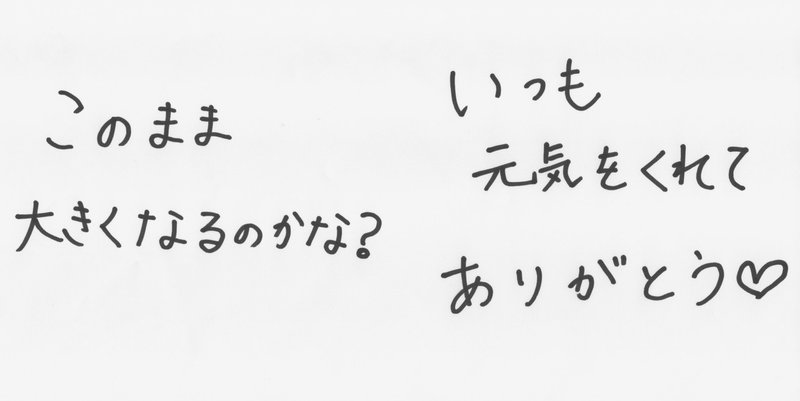 このまま
大きくなるのかな?
いつも
元気をくれて
ありがとう♡